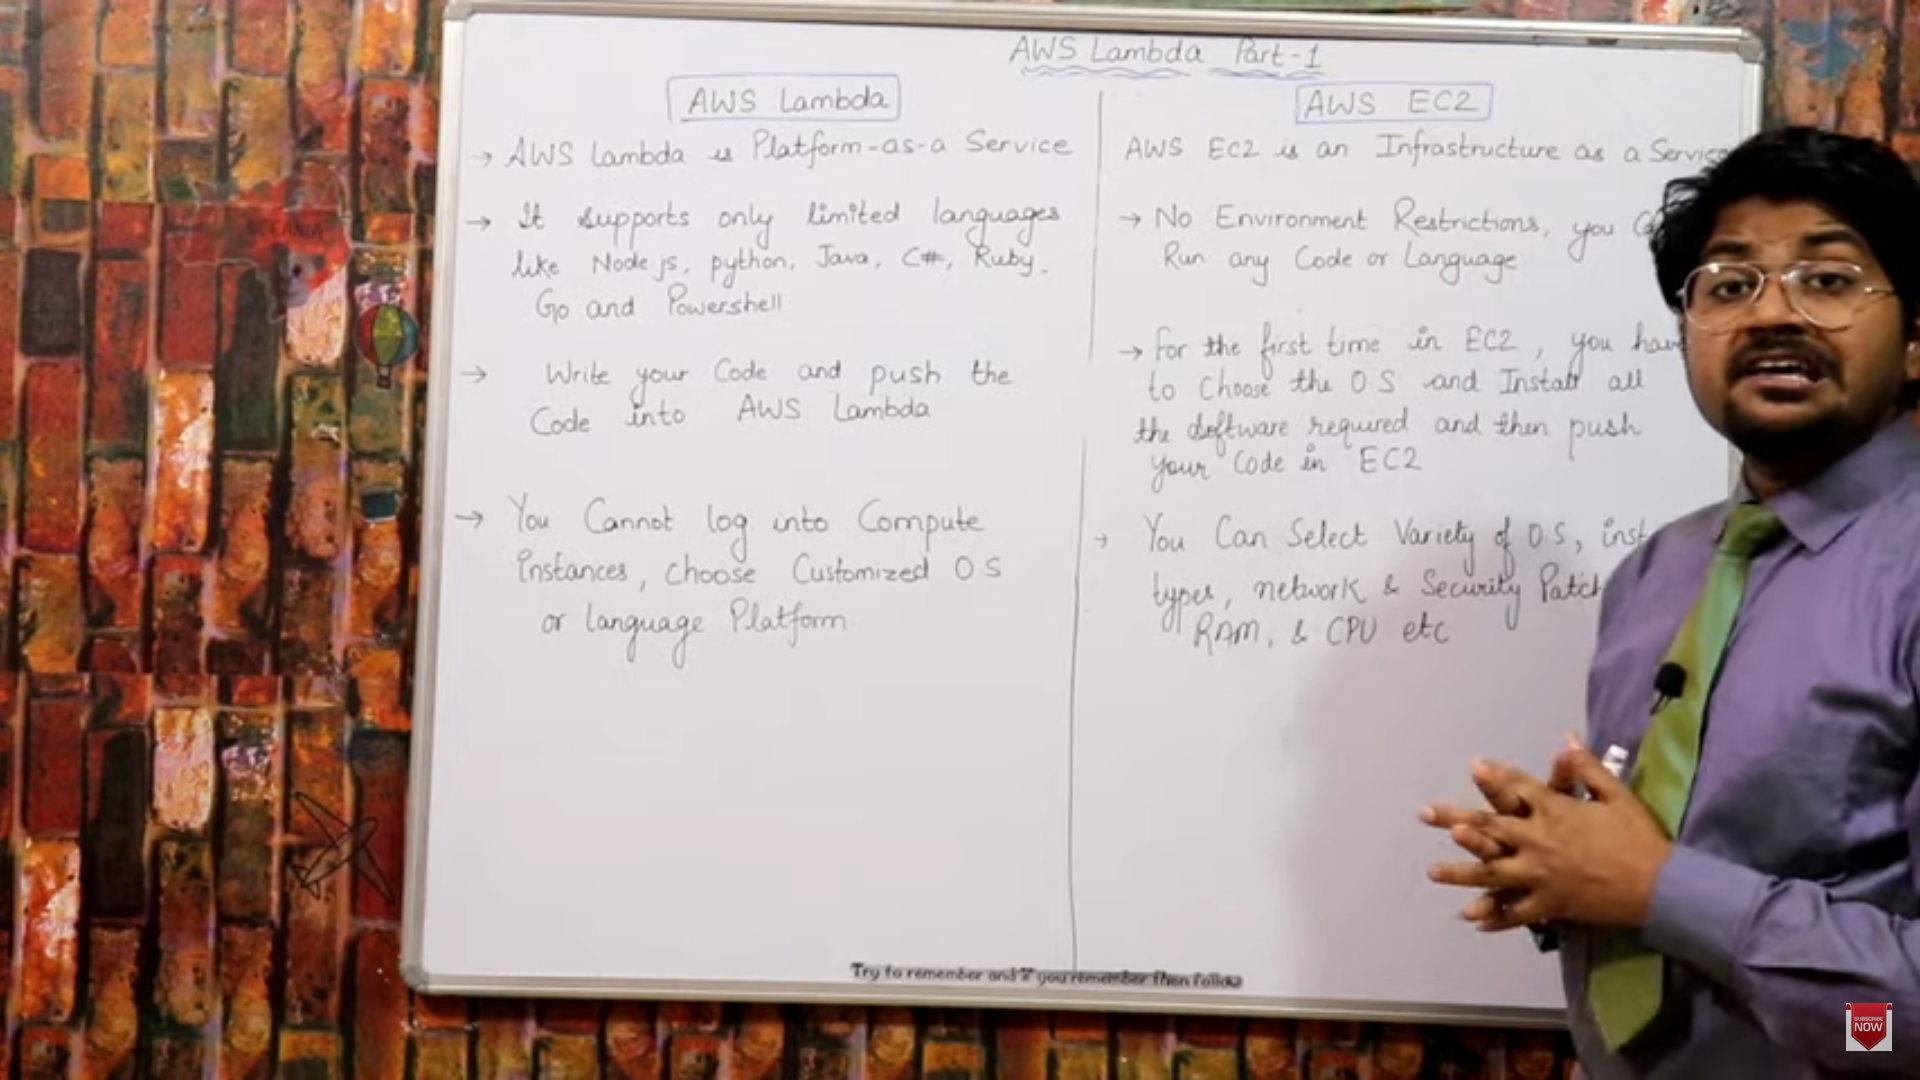 AWS Lambda Part-1
AWS Lambda
→ AWS Lambda is Platform-as-a Service
→ It supports only limited languages
like Node js, python, Java, C#, Ruby,
Go and Powershell
→ Write your Code and push the
Code into AWS Lambda
→ You Cannot log into Compute
instances, choose Customized O S
or language Platform.
AWS EC2
AWS EC2 is an Infrastructure as a Service
→ No Environment Restrictions, you
Run any Code or Language
→ For the first time in EC2, you have
to Choose the O S and Install all
the software required and then push
your Code in EC2
→ You Can Select Variety of O.S,
types, network & Security
RAM, & CPU etc
Try to remember and if you remember then follow
OCEANIA
SUBSCRIBE
NOW